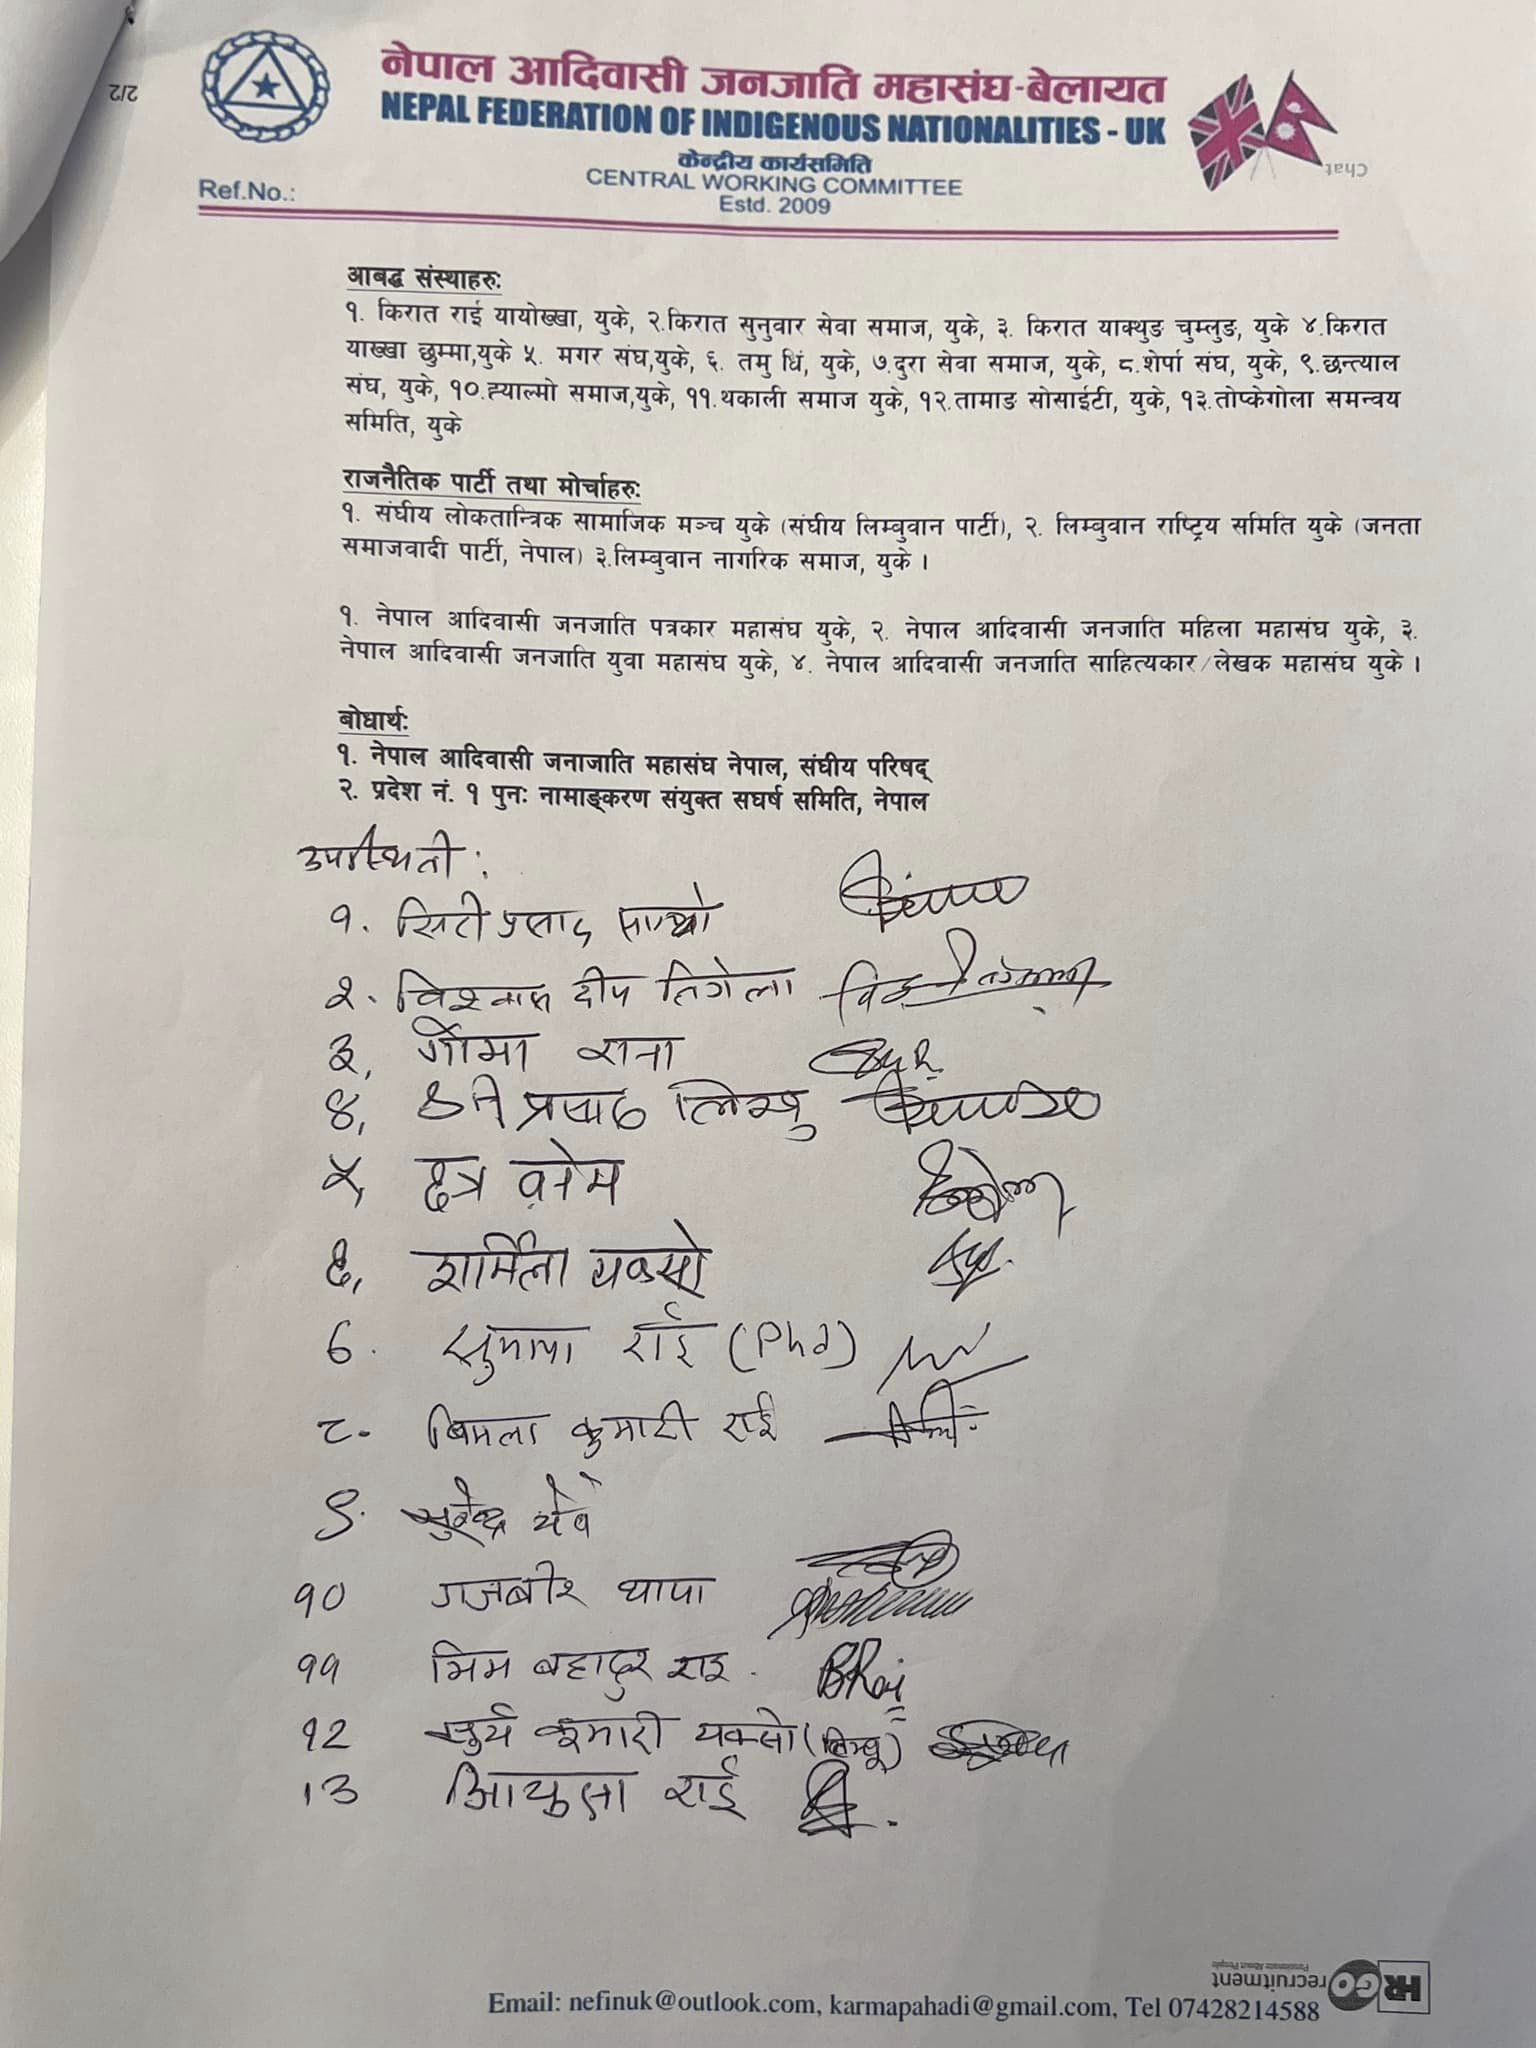 2/2
नेपाल आदिवासी जनजाति महासंघ-बेलायत
NEPAL FEDERATION OF INDIGENOUS NATIONALITIES - UK
केन्द्रीय कार्यसमिति
CENTRAL WORKING COMMITTEE
Chat
Ref.No.:
Estd. 2009
आबद्ध संस्थाहरुः
१. किरात राई यायोख्खा, युके, २.किरात सुनुवार सेवा समाज, युके, ३. किरात याक्थुङ चुम्लुङ, युके ४.किरात
याख्खा छुम्मा,युके ५. मगर संघ,युके, ६. तमु धिं, युके, ७.दुरा सेवा समाज, युके, ८.शेर्पा संघ, युके, ९.छन्त्याल
संघ, युके, १०.ह्याल्मो समाज,युके, ११.थकाली समाज युके, १२.तामाङ सोसाईटी, युके, १३.तोप्केगोला समन्वय
समिति, युके
राजनैतिक पार्टी तथा मोर्चाहरुः
१. संघीय लोकतान्त्रिक सामाजिक मञ्च युके (संघीय लिम्बुवान पार्टी), २. लिम्बुवान राष्ट्रिय समिति युके (जनता
समाजवादी पार्टी, नेपाल) ३.लिम्बुवान नागरिक समाज, युके ।
१. नेपाल आदिवासी जनजाति पत्रकार महासंघ युके, २. नेपाल आदिवासी जनजाति महिला महासंघ युके, ३.
नेपाल आदिवासी जनजाति युवा महासंघ युके, ४. नेपाल आदिवासी जनजाति साहित्यकार/लेखक महासंघ युके ।
बोधार्थः
१. नेपाल आदिवासी जनाजाति महासंघ नेपाल, संघीय परिषद्
२. प्रदेश नं. १ पुनः नामाङ्करण संयुक्त सघर्ष समिति, नेपाल
उपस्थिती :
१.
२. विश्वास दीप तिगेला
३. गोमा राना
४. प्रसाद लिम्बु
५. छत्र वनेम
६. शर्मिला यक्सो
७. राई (Phd)
८. बिमला कुमारी राई
९. सुरेन्द्र
१० गजबीर थापा
११ भिम बहादुर राइ. BRai
१२ सुर्य कुमारी यक्सो (लिम्बू)
13 राई
HR GO recruitment
Passionate About People
Email: nefinuk@outlook.com, karmapahadi@gmail.com, Tel 07428214588